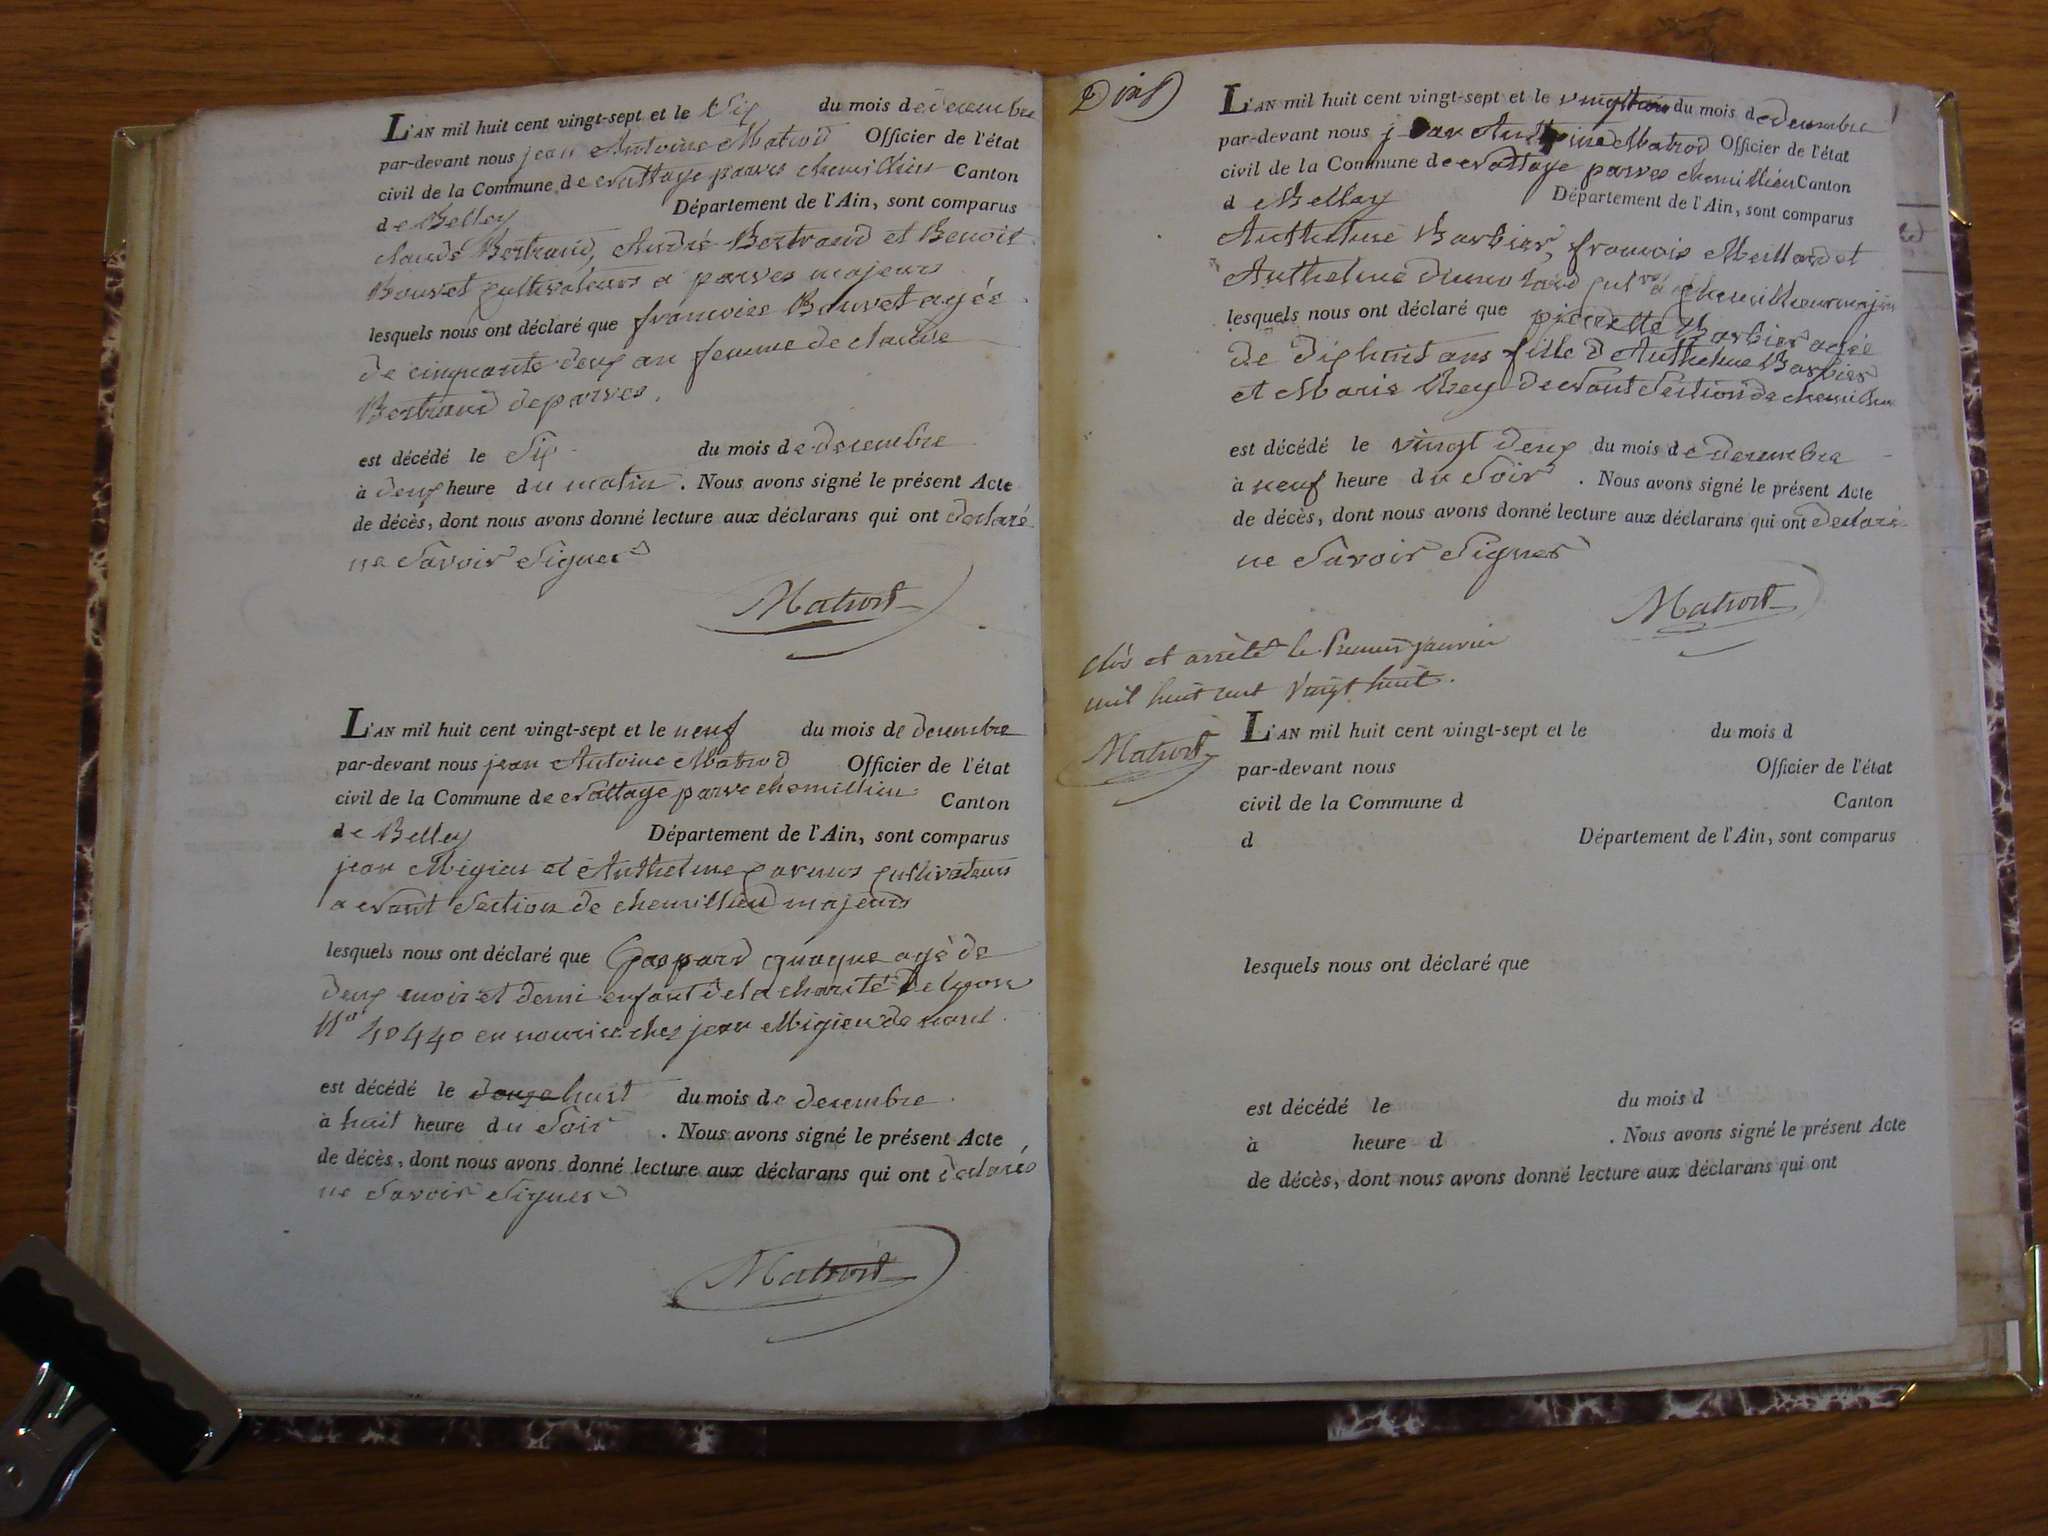 L'AN mil huit cent vingt-sept et le Six du mois de decembre
par-devant nous jean Antoine Matrod Officier de l'état
civil de la Commune de parves chemillieu Canton
de Belley Département de l'Ain, sont comparus
claude Bertrand, André Bertrand et Benoit
Bouvet cultivateurs a parves majeurs
lesquels nous ont déclaré que francoise Bouvet agée
de cinquante deux an femme de claude
Bertrand de parves.
est décédé le Six du mois de decembre
à deux heure du matin. Nous avons signé le présent Acte
de décès, dont nous avons donné lecture aux déclarans qui ont declaré
ne Savoir Signer
Matrod
L'AN mil huit cent vingt-sept et le neuf du mois de decembre
par-devant nous jean Antoine Matrod Officier de l'état
civil de la Commune de parve chemillieu Canton
de Belley Département de l'Ain, sont comparus
jean Migieu et Anthelme cultivateurs
a Section de chemillieu majeurs
lesquels nous ont déclaré que Gaspard agé de
deux mois et demi enfant de la charité De lyon
N° 40440 en nourice chez jean Migieu de nant
est décédé le douze huit du mois de decembre
à huit heure du Soir. Nous avons signé le présent Acte
de décès, dont nous avons donné lecture aux déclarans qui ont declarés
ne Savoir Signer
Matrod
L'AN mil huit cent vingt-sept et le vingt trois du mois de decembre
par-devant nous jean Anthoine Matrod Officier de l'état
civil de la Commune de parves chemillieu Canton
d Belley Département de l'Ain, sont comparus
Anthelme Barbier, francois Meilland et
Anthelme Dumolard a chemillieu majeurs
lesquels nous ont déclaré que pierrette Barbier agée
de dix huit ans fille d'Anthelme Barbier
et Marie Rey Section de chemillieu
est décédé le vingt deux du mois de decembre
à neuf heure du Soir. Nous avons signé le présent Acte
de décès, dont nous avons donné lecture aux déclarans qui ont declaré
ne Savoir Signer
Matrod
clos et arrêté le Premier janvier
mil huit cent vingt huit.
Matrod
L'AN mil huit cent vingt-sept et le du mois d
par-devant nous Officier de l'état
civil de la Commune d Canton
d Département de l'Ain, sont comparus
lesquels nous ont déclaré que
est décédé le du mois d
à heure d. Nous avons signé le présent Acte
de décès, dont nous avons donné lecture aux déclarans qui ont